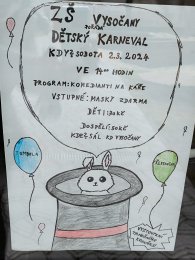 ZŠ VYSOČANY
DĚTSKÝ KARNEVAL
KDY? SOBOTA 2.3. 2024
VE 14⁰⁰ HODIN
PROGRAM: KOMEDIANTI NA KÁŘE
VSTUPNÉ: MASKY ZDARMA
DĚTI
DOSPĚLÍ
KDE? SÁL KD VYSOČANY
TOMBOLA